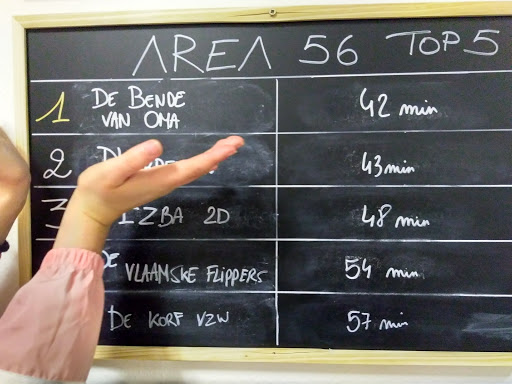 AREA 56 TOP 5
1 DE BENDE
VAN OMA 42 min
2 43 min
3 IZBA 2D 48 min
DE
VLAAMSKE FLIPPERS 54 min
DE KORF VZW 57 min